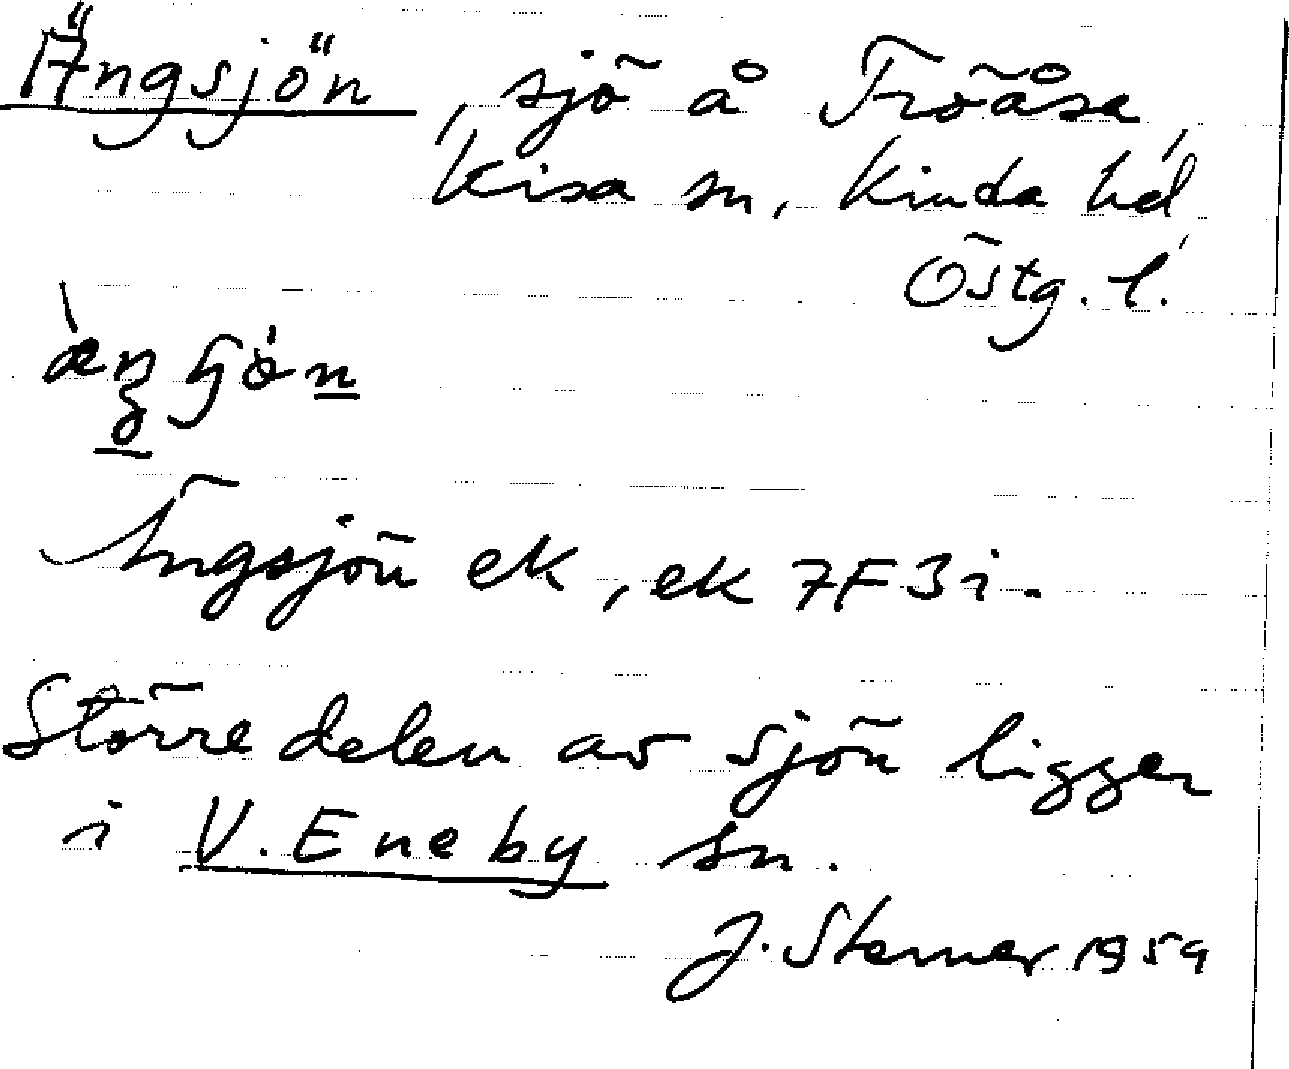 Ängsjön, sjö å Fröåsa,
Kisa sn, Kinda hd,
Östg. l.
Ängsjön ek, ek 7F3i.
Större delen av sjön ligger
i V. Eneby sn.
J. Sterner 1959